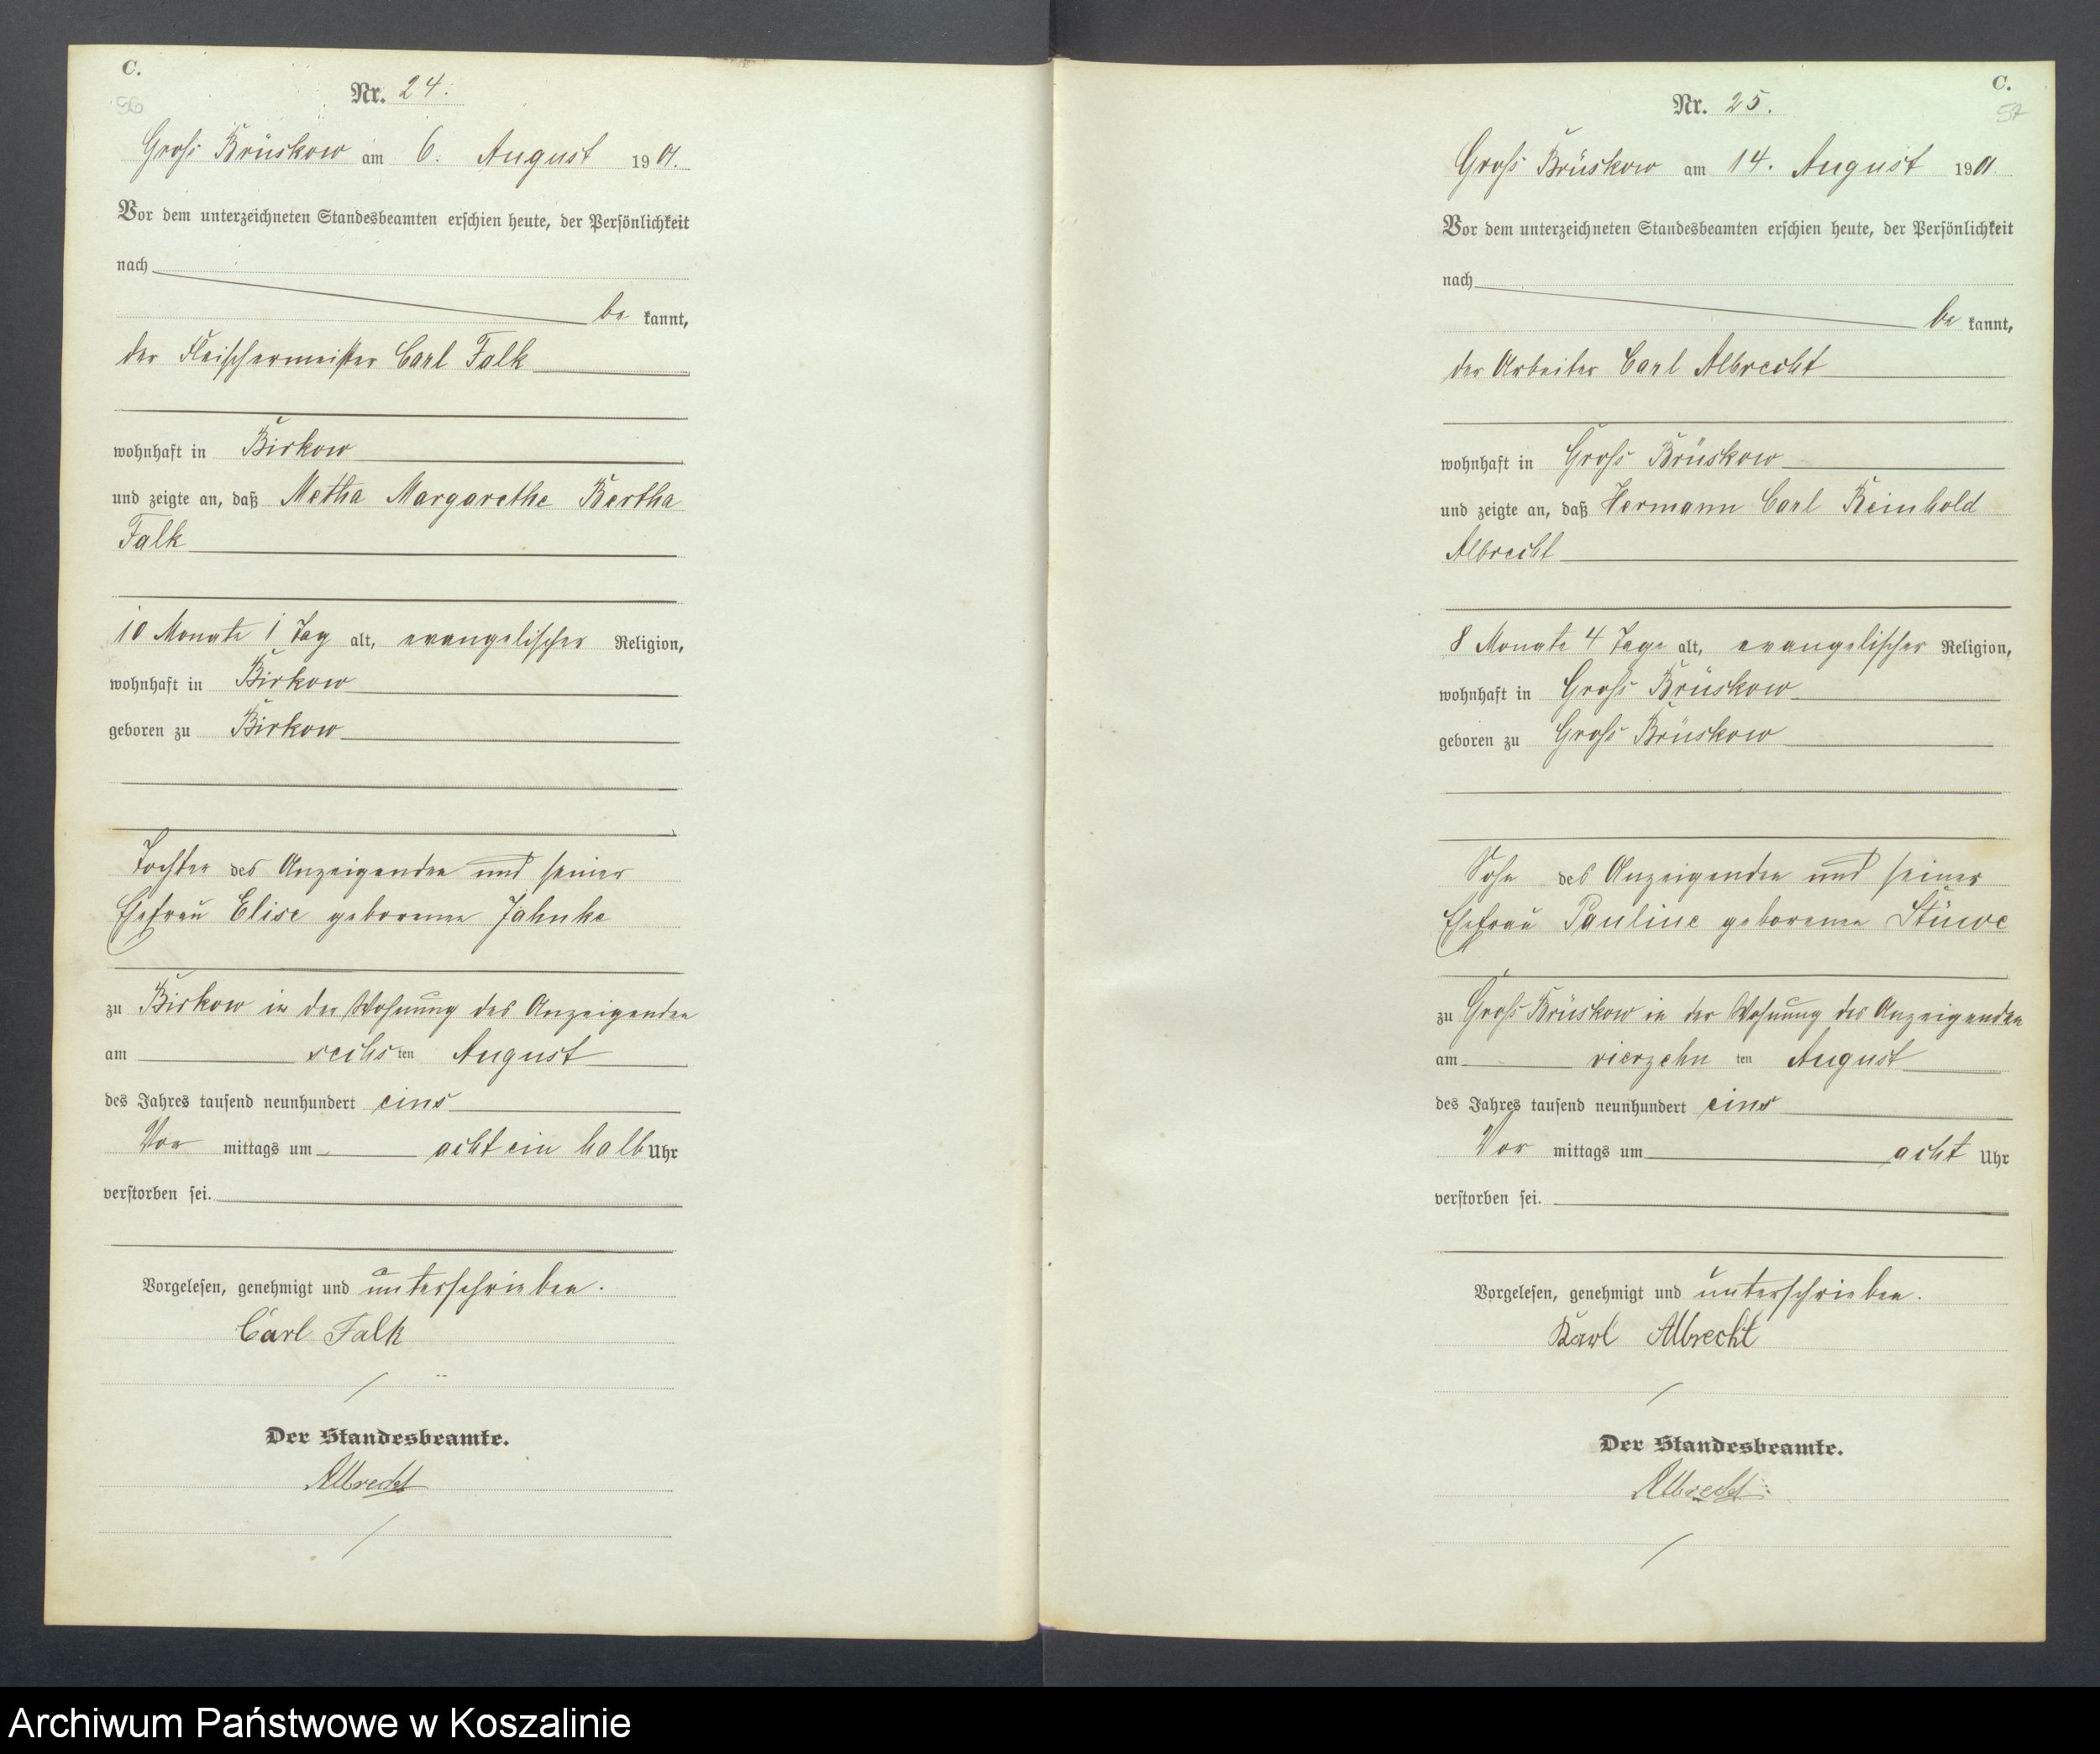 C.
56
Nr. 24.
Groß Brüskow am 6. August 1901.
Vor dem unterzeichneten Standesbeamten erschien heute, der Persönlichkeit
nach
be kannt,
der Fleischermeister Carl Falk
wohnhaft in Birkow
und zeigte an, daß Metha Margarethe Bertha
Falk
10 Monate 1 Tag alt, evangelischer Religion,
wohnhaft in Birkow
geboren zu Birkow
Tochter des Anzeigenden und seiner
Ehefrau Elise geborenen Jahnke
zu Birkow in der Wohnung des Anzeigenden
am sechsten August
des Jahres tausend neunhundert eins
Vor mittags um acht ein halb Uhr
verstorben sei.
Vorgelesen, genehmigt und unterschrieben.
Carl Falk
Der Standesbeamte.
Albrecht
C.
57
Nr. 25.
Groß Brüskow am 14. August 1901.
Vor dem unterzeichneten Standesbeamten erschien heute, der Persönlichkeit
nach
be kannt,
der Arbeiter Carl Albrecht
wohnhaft in Groß Brüskow
und zeigte an, daß Hermann Carl Reinhold
Albrecht
8 Monate 4 Tage alt, evangelischer Religion,
wohnhaft in Groß Brüskow
geboren zu Groß Brüskow
Sohn des Anzeigenden und seiner
Ehefrau Pauline geborenen Stüwe
zu Groß Brüskow in der Wohnung des Anzeigenden
am vierzehn ten August
des Jahres tausend neunhundert eins
Vor mittags um acht Uhr
verstorben sei.
Vorgelesen, genehmigt und unterschrieben.
Karl Albrecht
Der Standesbeamte.
Albrecht
Archiwum Państwowe w Koszalinie